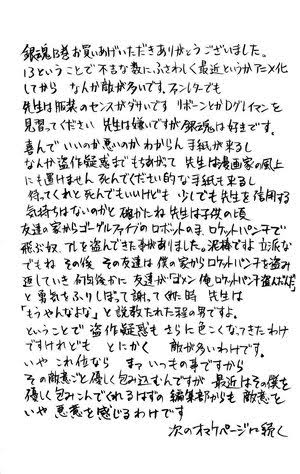 銀魂13巻お買いあげいただきありがとうございました。
13ということで不吉な数にふさわしく最近というかアニメ化
してから なんか敵が多いです。ファンレターでも
先生は服装のセンスがダサいです リボーンとかDグレイマンを
見習ってください 先生は嫌いですが銀魂は好きです。
喜んでいいのか悪いのかわからん手紙が来るし
なんか盗作疑惑までもちあがって 先生は漫画家の風上
にも置けません 死んでください的な手紙も来るし
待ってくれと死んでもいいけども 少しでも先生を信用する
気持ちはないのかと 確かにね 先生は子供の頃
友達の家からゴーグルファイブのロボットのま、ロケットパンチで
飛ぶ奴、アレを盗んできた事がありました。泥棒ですよ 立派な
でもね その後 その友達は 僕の家からロケットパンチを盗み
返していき 何日後かに 友達が「ゴメン 俺ロケットパンチ盗んだんだ」
と勇気をふりしぼって謝ってくれた時 先生は
「もうやんなよな」と説教たれた程の男ですよ。
ということで 盗作疑惑も さらに色こくなってきたわけ
ですけれども とにかく 敵が多いわけです。
いや これ位なら まァ いつもの事ですから
その敵意ごと優しく包み込むんですが 最近はその僕を
優しく包みこんでくれるはずの 編集部からも 敵意を
いや 悪意を感じるわけです
次のオマケページに続く